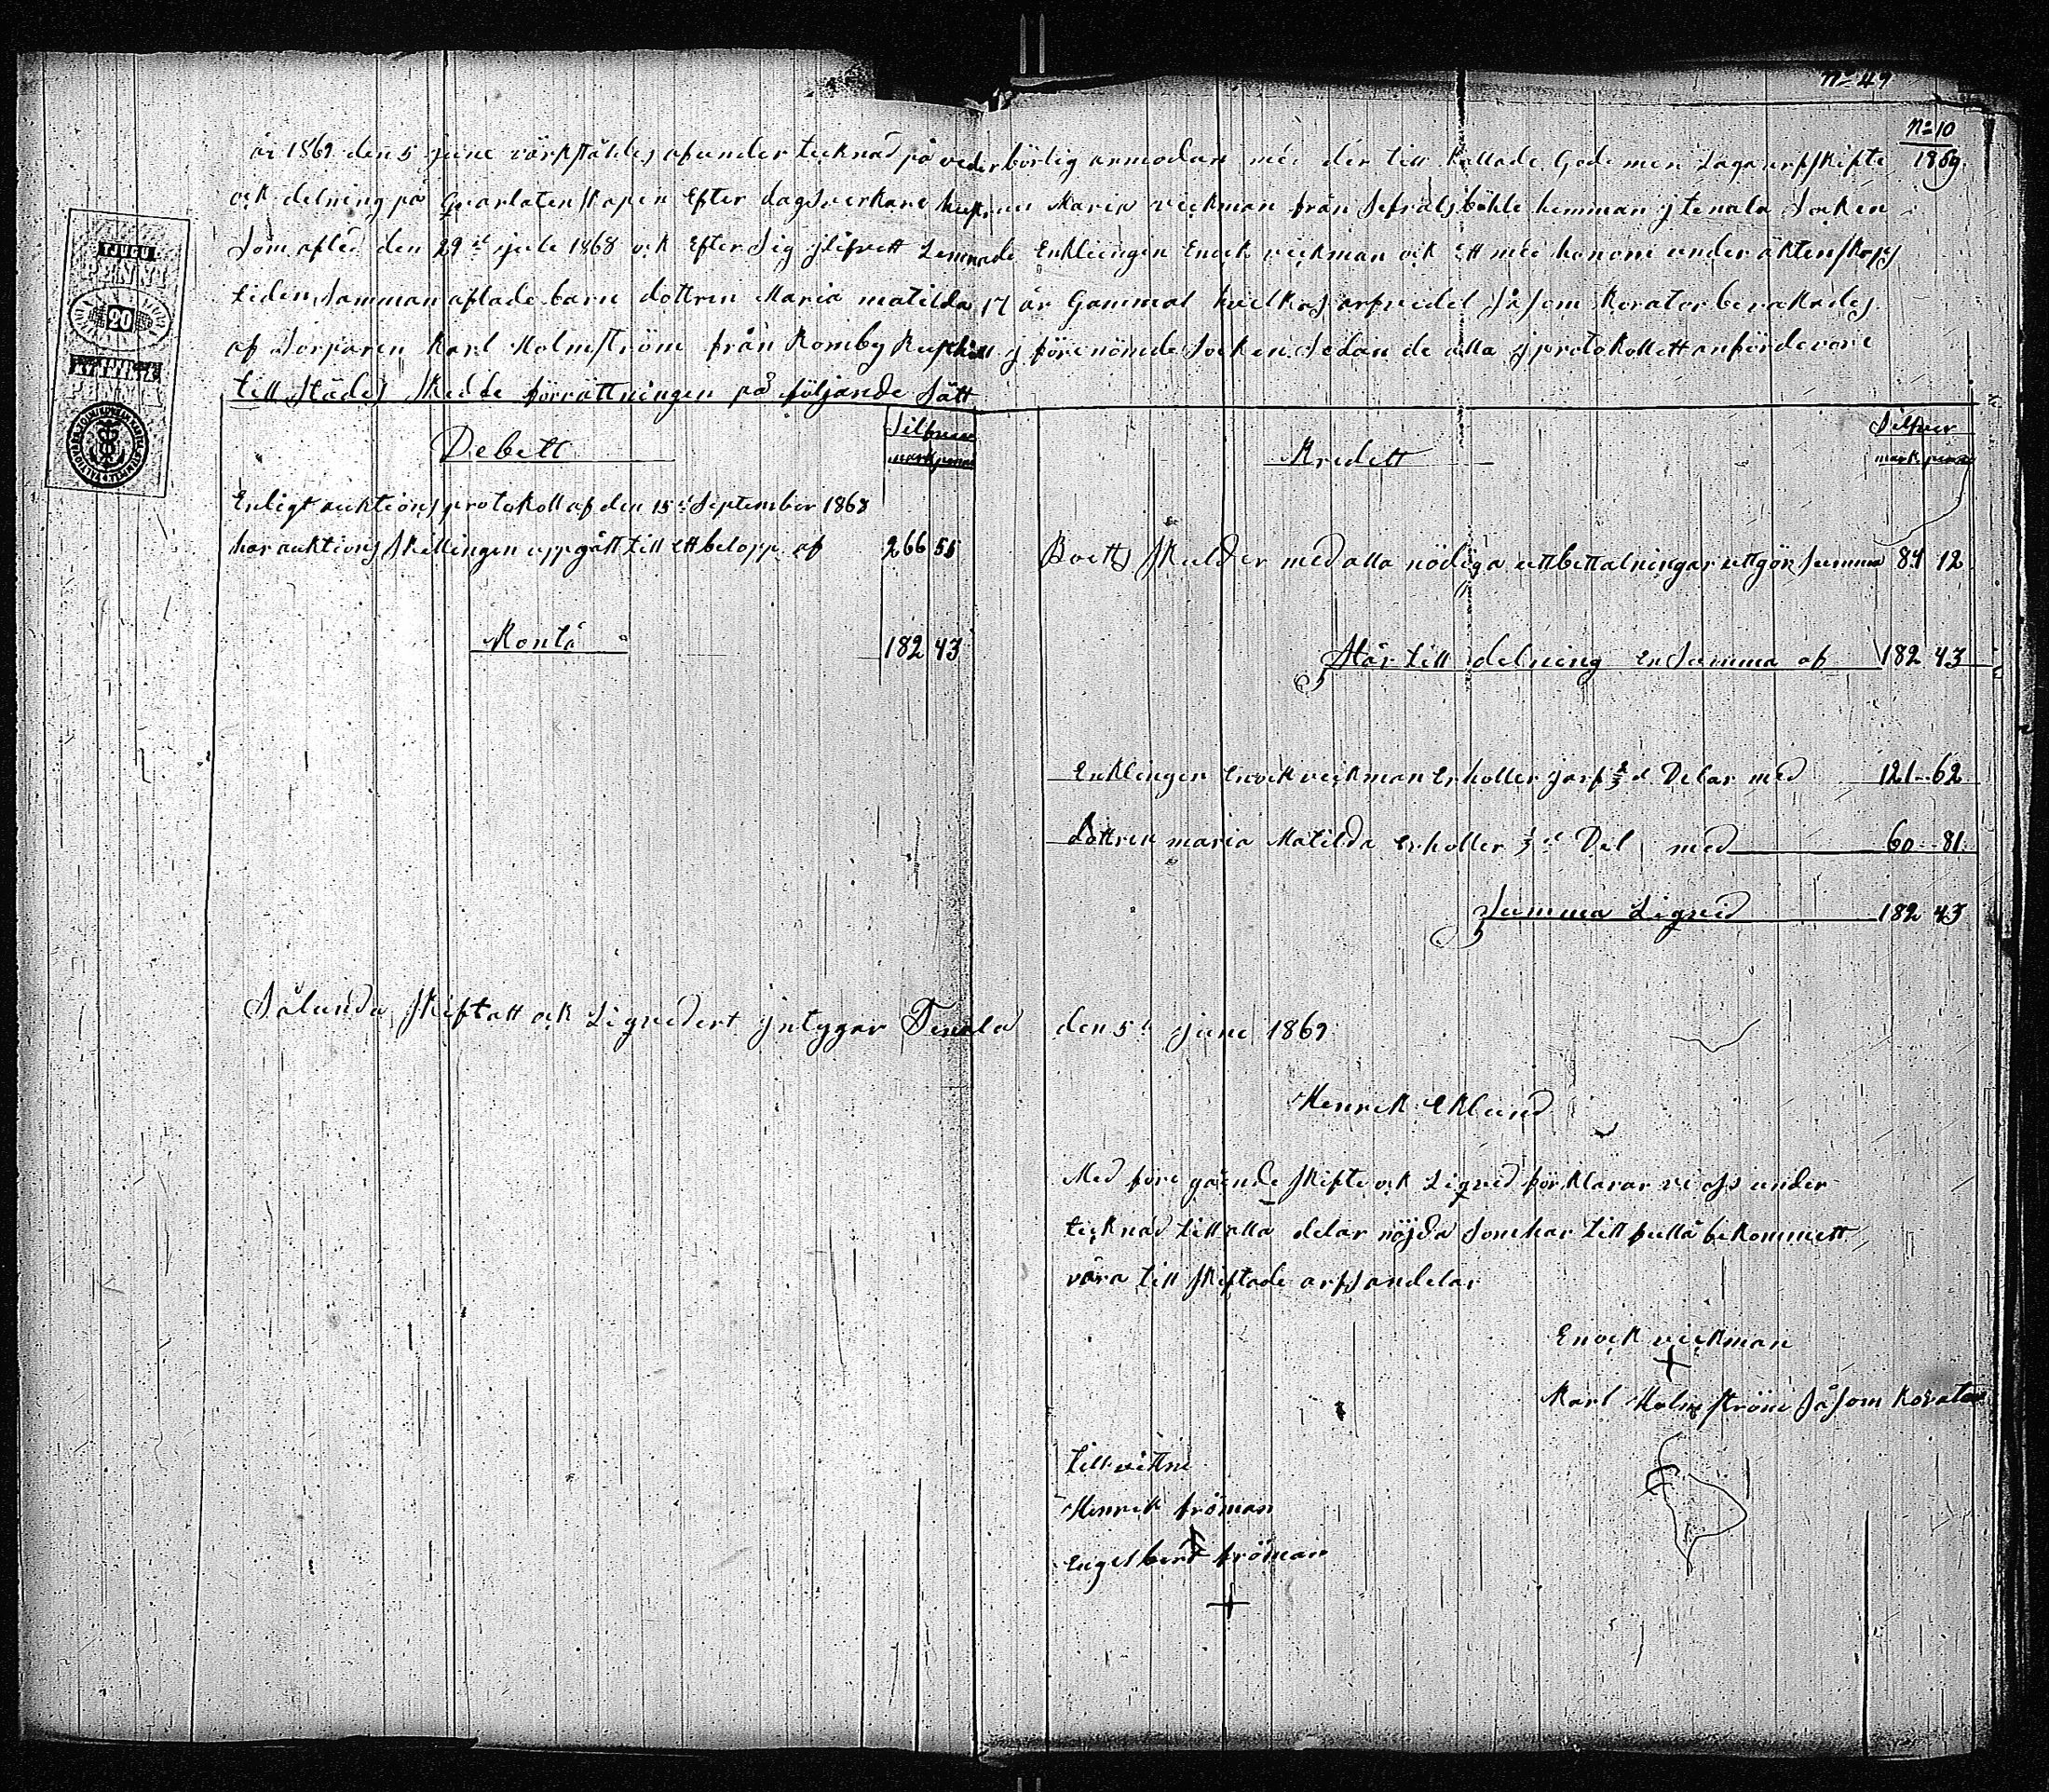 No 49
No 10
1869.
år 1869 den 5 June värkstäldes af under tecknad på vederbörlig anmodan med der till kallade Gode men Laga arfskifte
ock delning på Qvarlatenskapen Efter dagsverkare hustrun Maria veckman från Sefrolsböhle hemman j tenala Socken
Som afled den 29de jule 1868 ock Efter Sig j lifvett Lemnade Enklingen Enock veckman ock Ett med honom under äktenskaps
tiden Samman aflade barn dottren Maria matilda 17 år Gammal hvilkas arfs del Såsom Korator bevakades
af Torparen Karl Holmström från Romby Rusthåll j före nämde Socken Sedan de alla j protokollett anförde vore
till Städes Skedde förrättningen på följande Sätt
Debett
Silfver
mark penni
Kredett
Silfver
mark penni
Enligt auktions protokoll af den 15de September 1868
har auktions Skillingen uppgått till Ett belopp af 266 55
Boetts Skulder med alla nödiga uttbettalningar uttgör Summa 84 12
Kontä 182 43
Står till delning En Summa af 182 43
Enklingen Enock veckman Erholler j arf 2/3de Delar med 121 62
dottren maria Matilda Erholler 1/3de Del med 60 81
Summa Liqvid 182 43
Sålunda Skiftatt ock Liqvidert jntygar Tenala den 5te June 1869
Henrik Eklund
Med före gående Skifte ock Liqvid förklarar vi oss under
tecknad till alla delar nöjda Som har till fullå bekommett
våra till Skiftade arfs andelar
Enock veckman
+
Karl Holmström Såsom Korator
till vittne
Henrik fröman
Engelbert fröman
+
TJUGU
PENNI
20